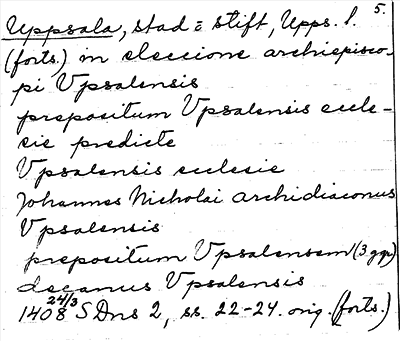 5.
Uppsala, stad = stift, Upps. l.
(forts.) in eleccione archiepisco-
pi Vpsalensis
prepositum Vpsalensis eccle-
sie predicte
Vpsalensis ecclesie
Johannes Nicholai archidiaconus
Vpsalensis
prepositum Vpsalensem (3 ggr)
decanus Vpsalensis
1408 24/3 SDns 2, ss. 22-24. orig. (forts.)